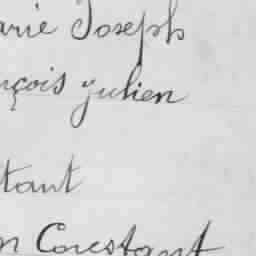 arie Joseph
nçois Julien
tant
n Constant